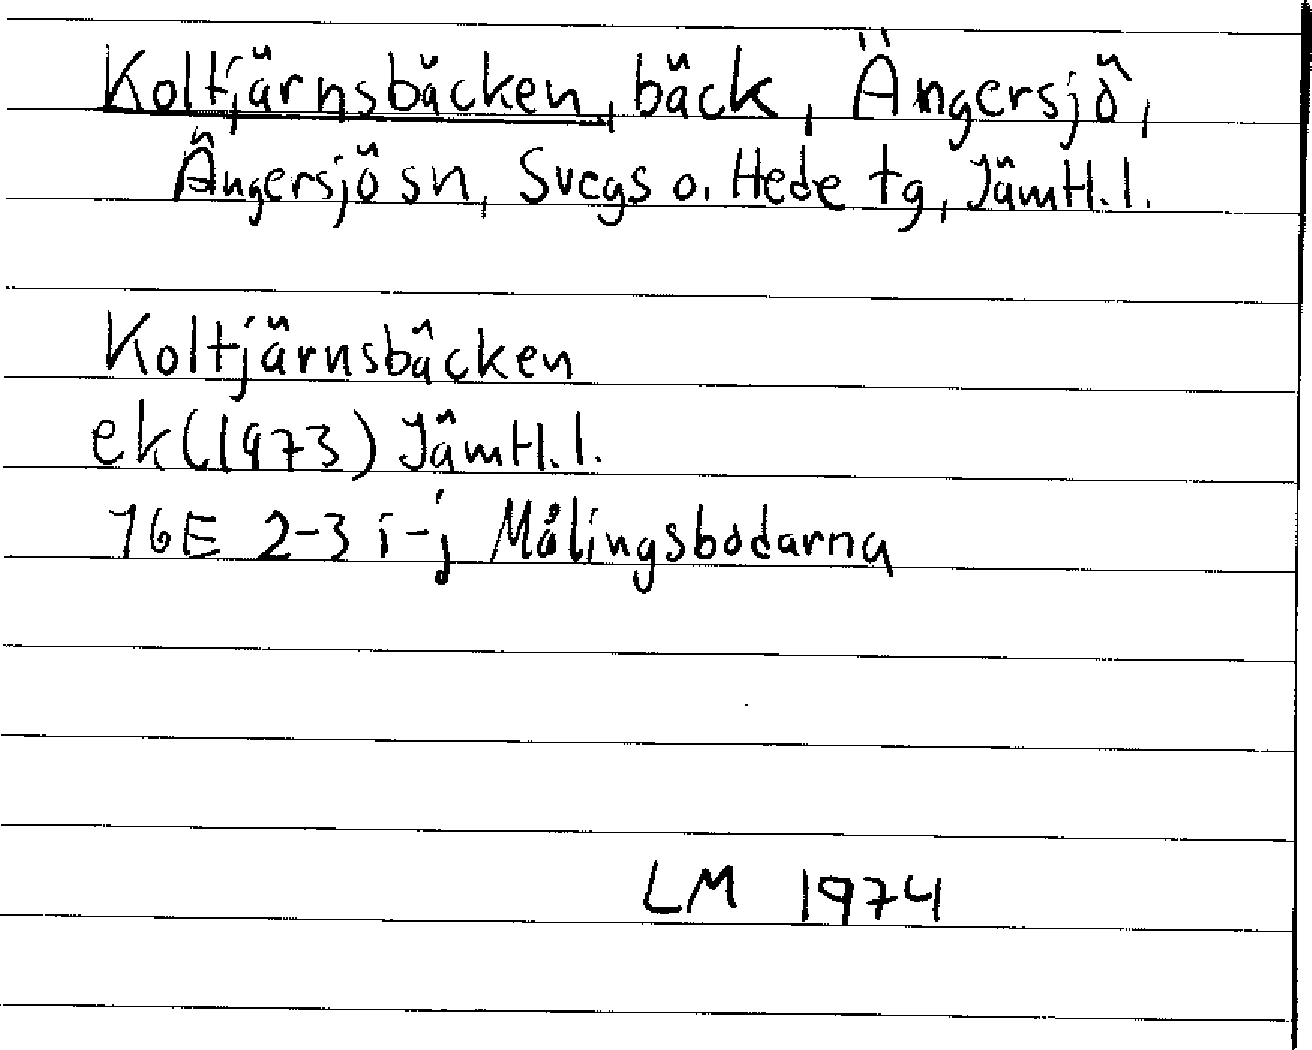 Koltjärnsbäcken, bäck, Ängersjö,
Ängersjö sn, Svegs o. Hede tg, Jämtl. l.
Koltjärnsbäcken
ek (1973) Jämtl. l.
16E 2-3 i-j Målingsbodarna
LM 1974